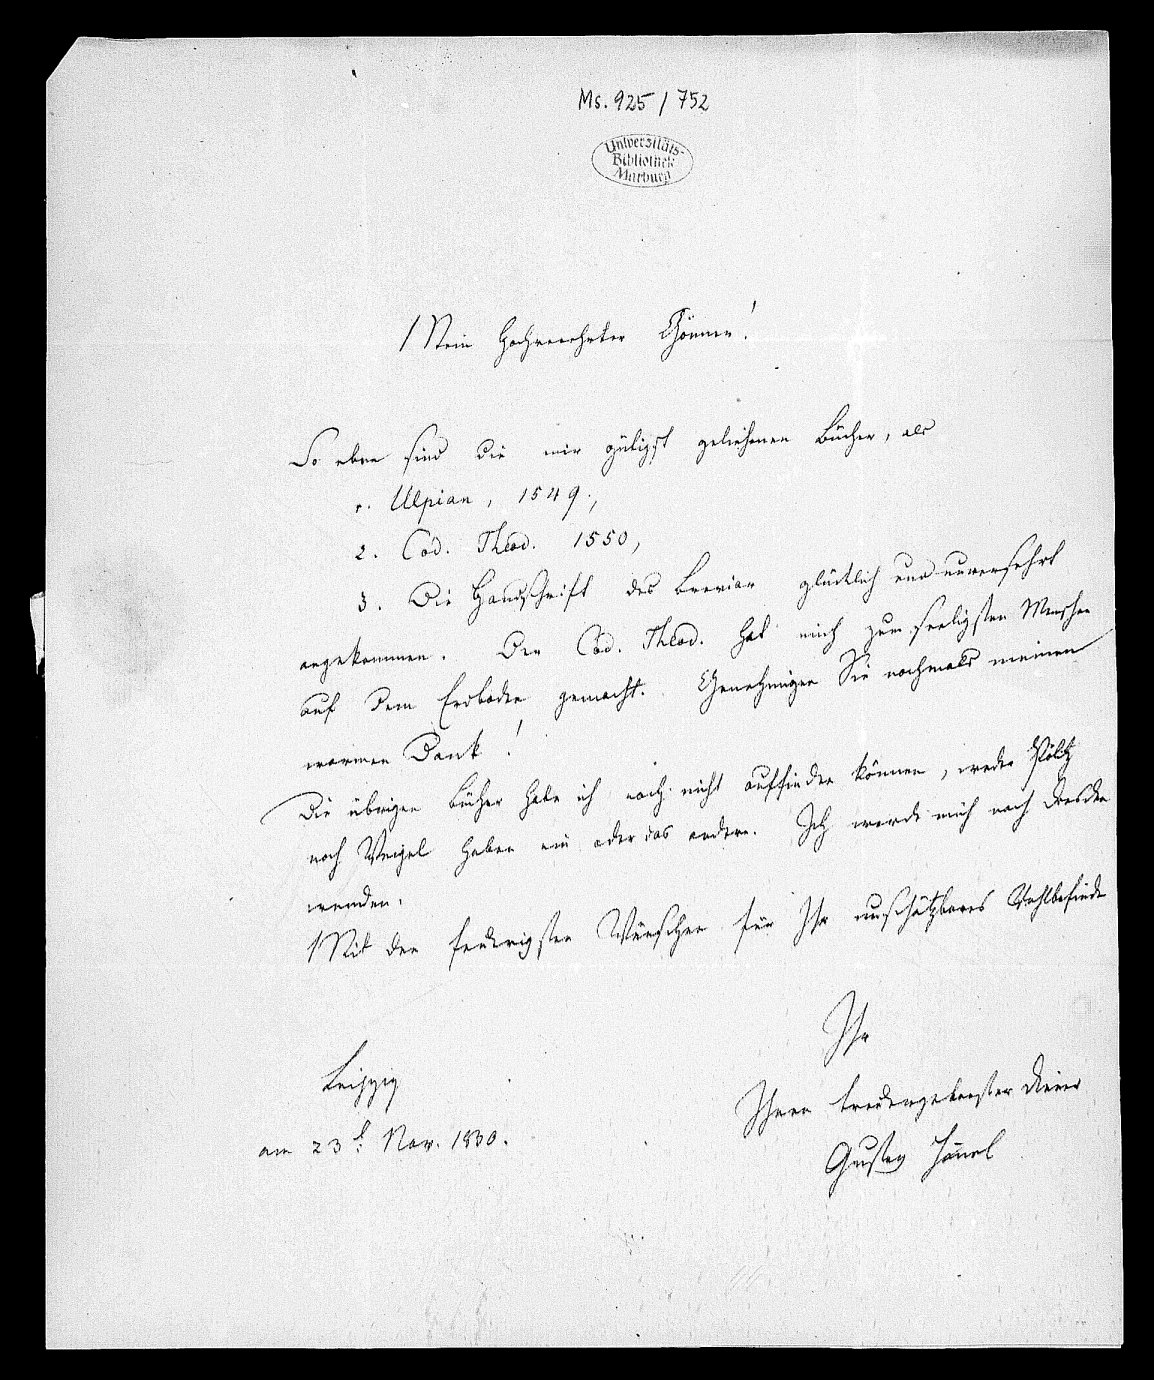 Ms. 925 / 752
Universitäts-
Bibliothek
Marburg
Mein Hochverehrter Gönner!
So eben sind die mir gütigst geliehenen Bücher, als
1. Ulpian, 1549.,
2. Cod. Theod. 1550,
3. Die Handschrift des Breviar glücklich und unversehrt
angekommen. Der Cod. Theod. hat mich zum seeligsten Menschen
auf dem Erdboden gemacht. Genehmigen Sie nochmals meinen
warmen Dank!
Die übrigen Bücher habe ich noch nicht auffinden können, weder Pölitz
noch Weigel haben ein oder das andere. Ich werde mich nach Dresden
wenden.
Mit den feurigsten Wünschen für Ihr unschätzbares Wohlbefinden
Ihr
Leipzig
Ihnen treuergebenster Diener
am 23t. Nov. 1830.
Gustav Hänel